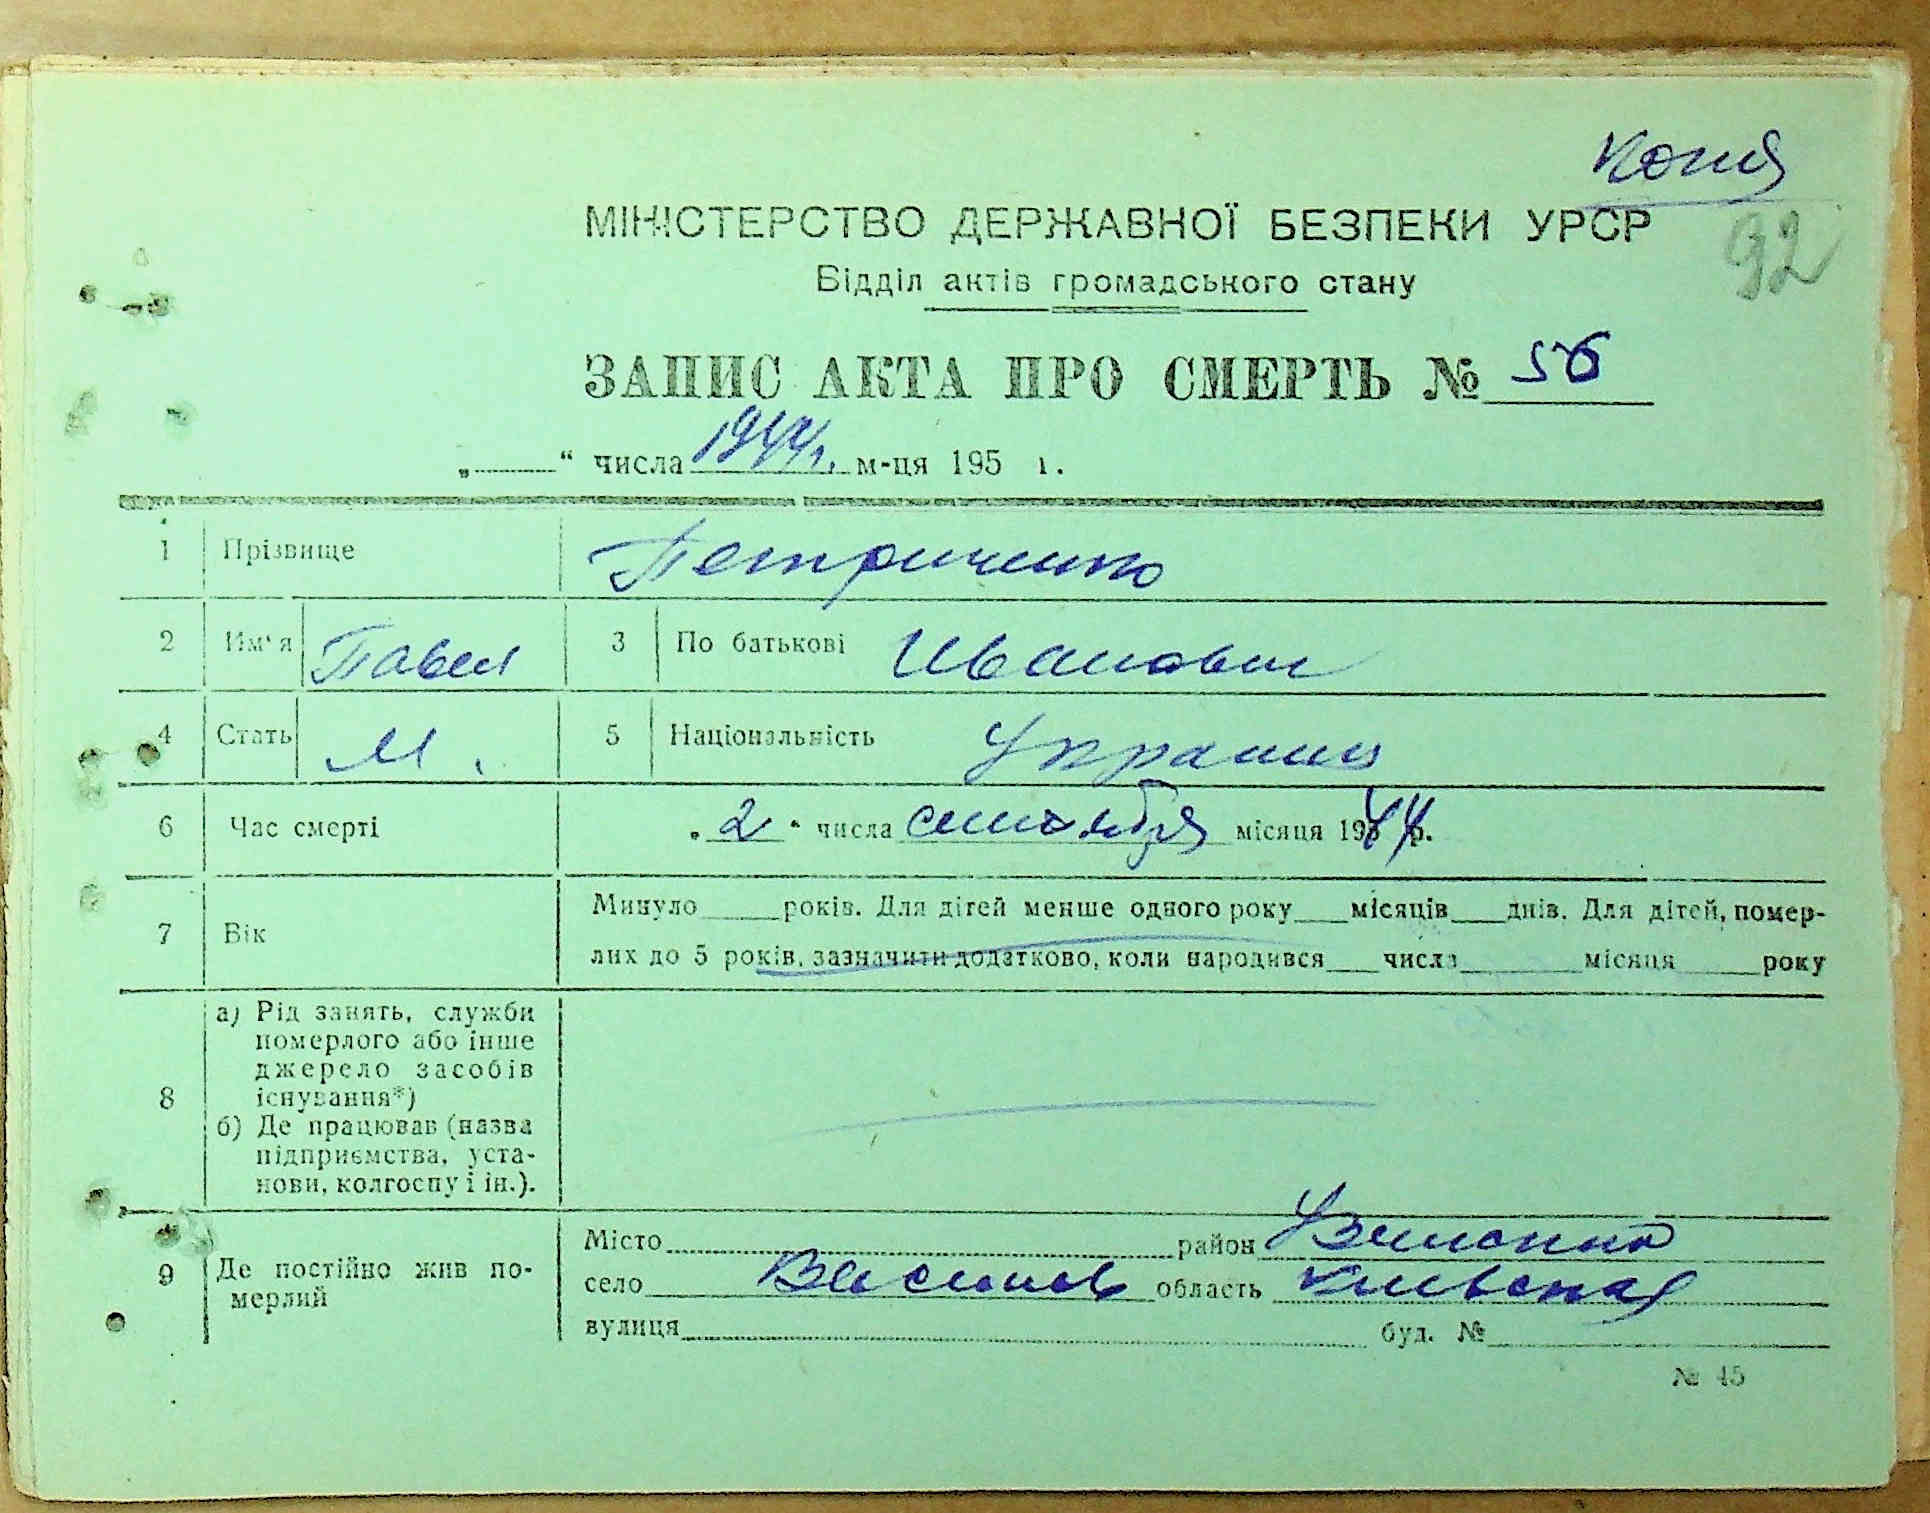 Копия
МІНІСТЕРСТВО ДЕРЖАВНОЇ БЕЗПЕКИ УРСР
92
Відділ актів громадського стану
ЗАПИС АКТА ПРО СМЕРТЬ № 56
„ “ числа 1944г. м-ця 195 г.
1 Прізвище Петриченко
2 Им‘я Павел 3 По батькові Иванович
4 Стать М. 5 Національність Украинец
6 Час смерті „ 2 “ числа сентября місяця 1944р.
7 Вік Минуло років. Для дітей менше одного року місяців днів. Для дітей, помер-
лих до 5 років, зазначити додатково, коли народився числа місяця року
8 а) Рід занять, служби
померлого або інше
джерело засобів
існування*)
б) Де працював (назва
підприємства, уста-
нови, колгоспу і ін.).
9 Де постійно жив по-
мерлий
Місто район
село область Киевская
вулиця буд. №
№ 45